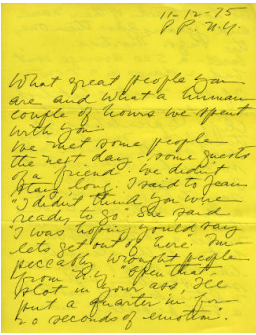 11-12-75
P.P. N.Y.
What great people you
are and what a human
couple of hours we spent
with you.
We met some people
the next day - some guests
of a friend. We didn't
stay long. I said to Jean
"I didn't think you were
ready to go." She said
"I was hoping you'd say
lets get out of here." Im-
peccably wrought people
from "open that
slot in your ass, I'll
put a quarter in for
20 seconds of emotion".